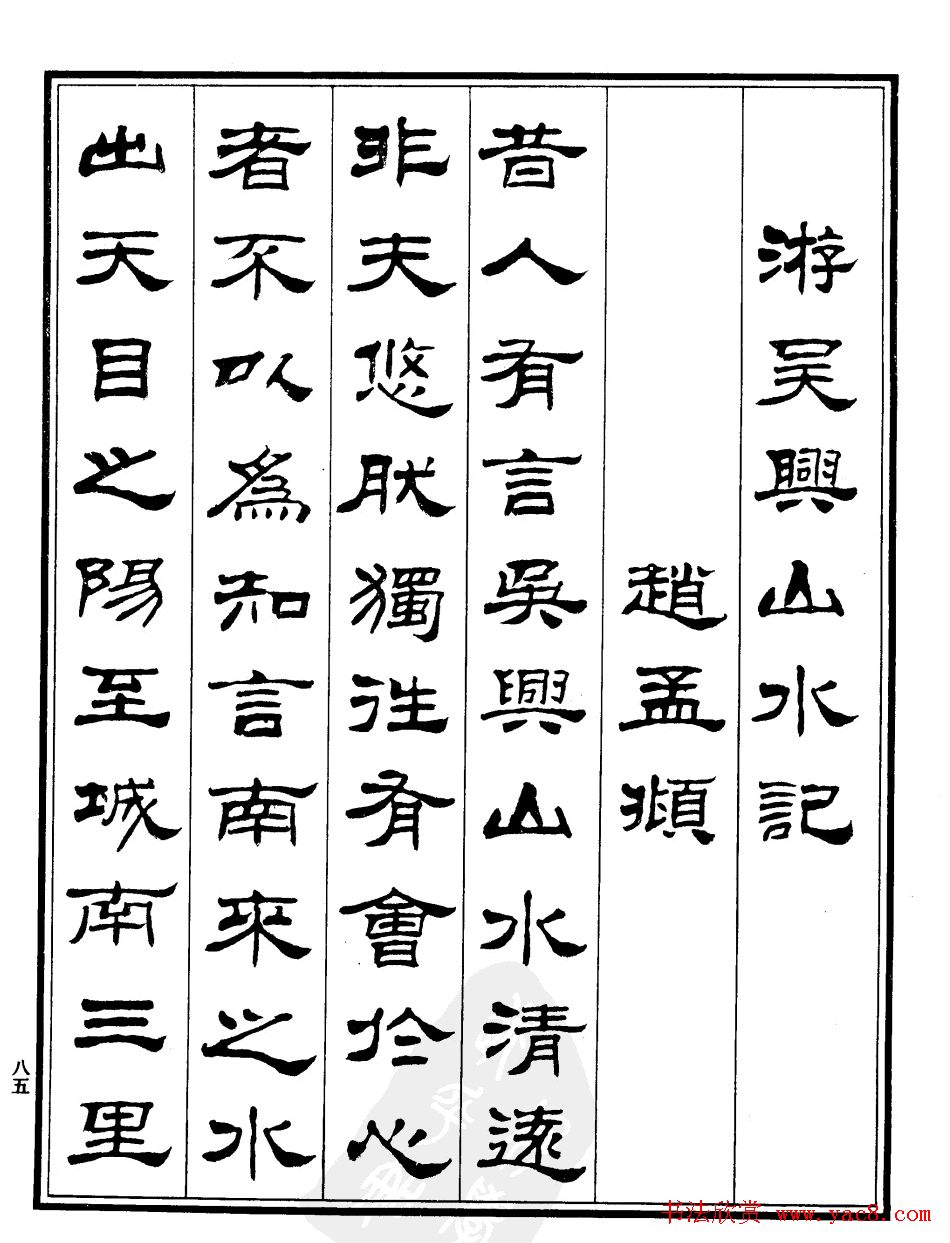 游吳興山水記
趙孟頫
昔人有言吳興山水清遠
非夫悠肰獨往有會於心
者不以為知言南來之水
出天目之陽至城南三里
八五
书法欣赏 www.yac8.com